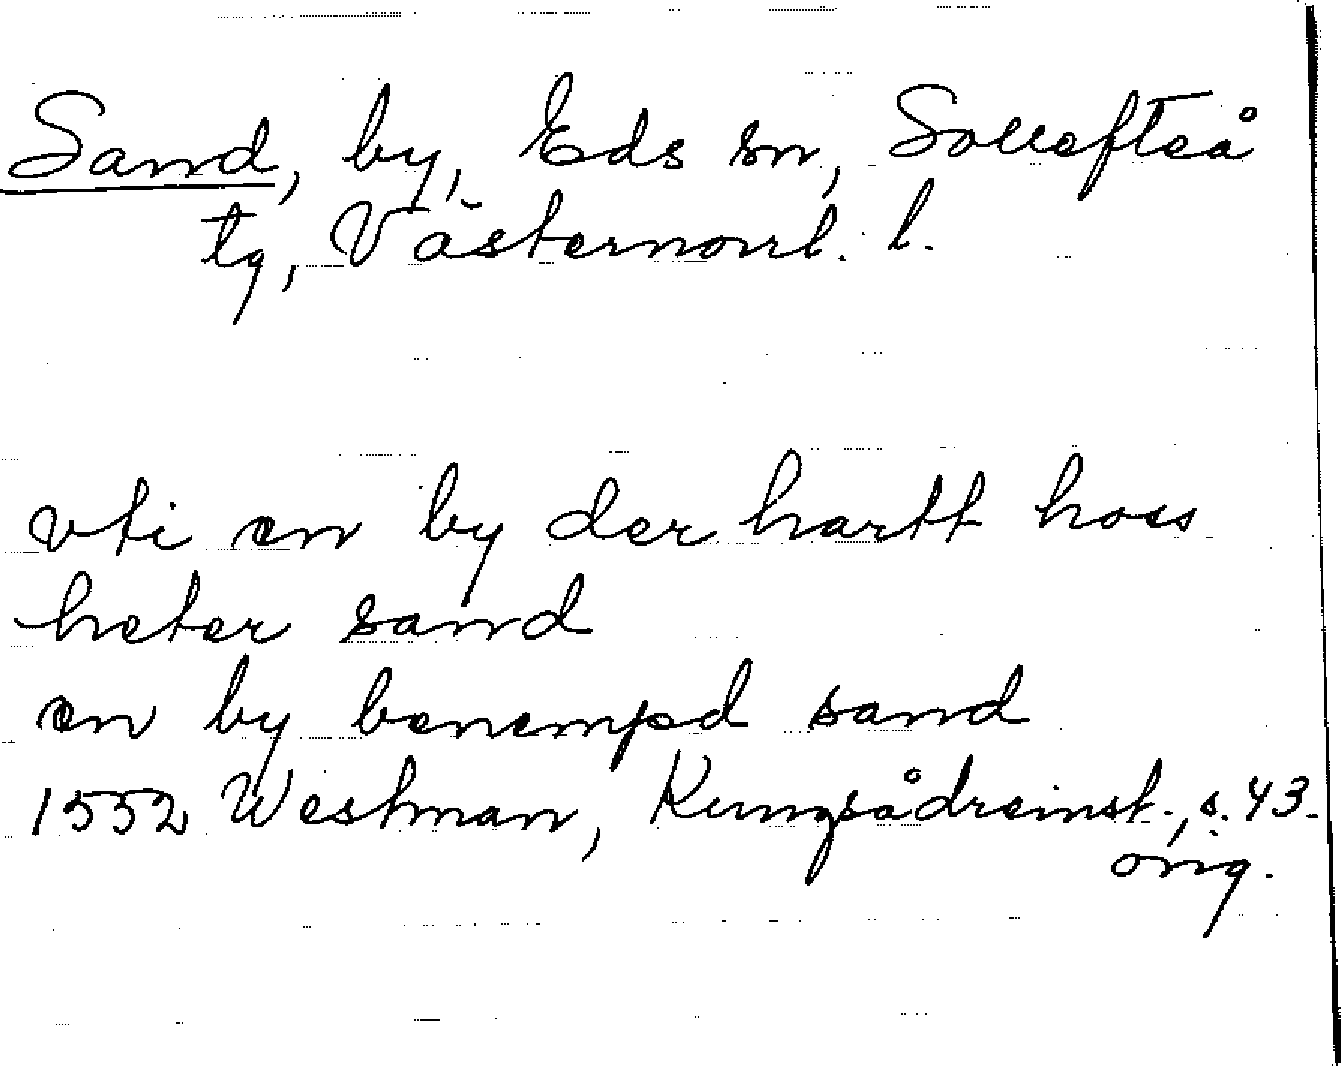 Sand, by, Eds sn, Sollefteå
tg, Västernorrl. l.
vti en by der hartt hoss
heter sand
en by benempd sand
1552 Westman, Kungsådreinst., s. 43.
orig.